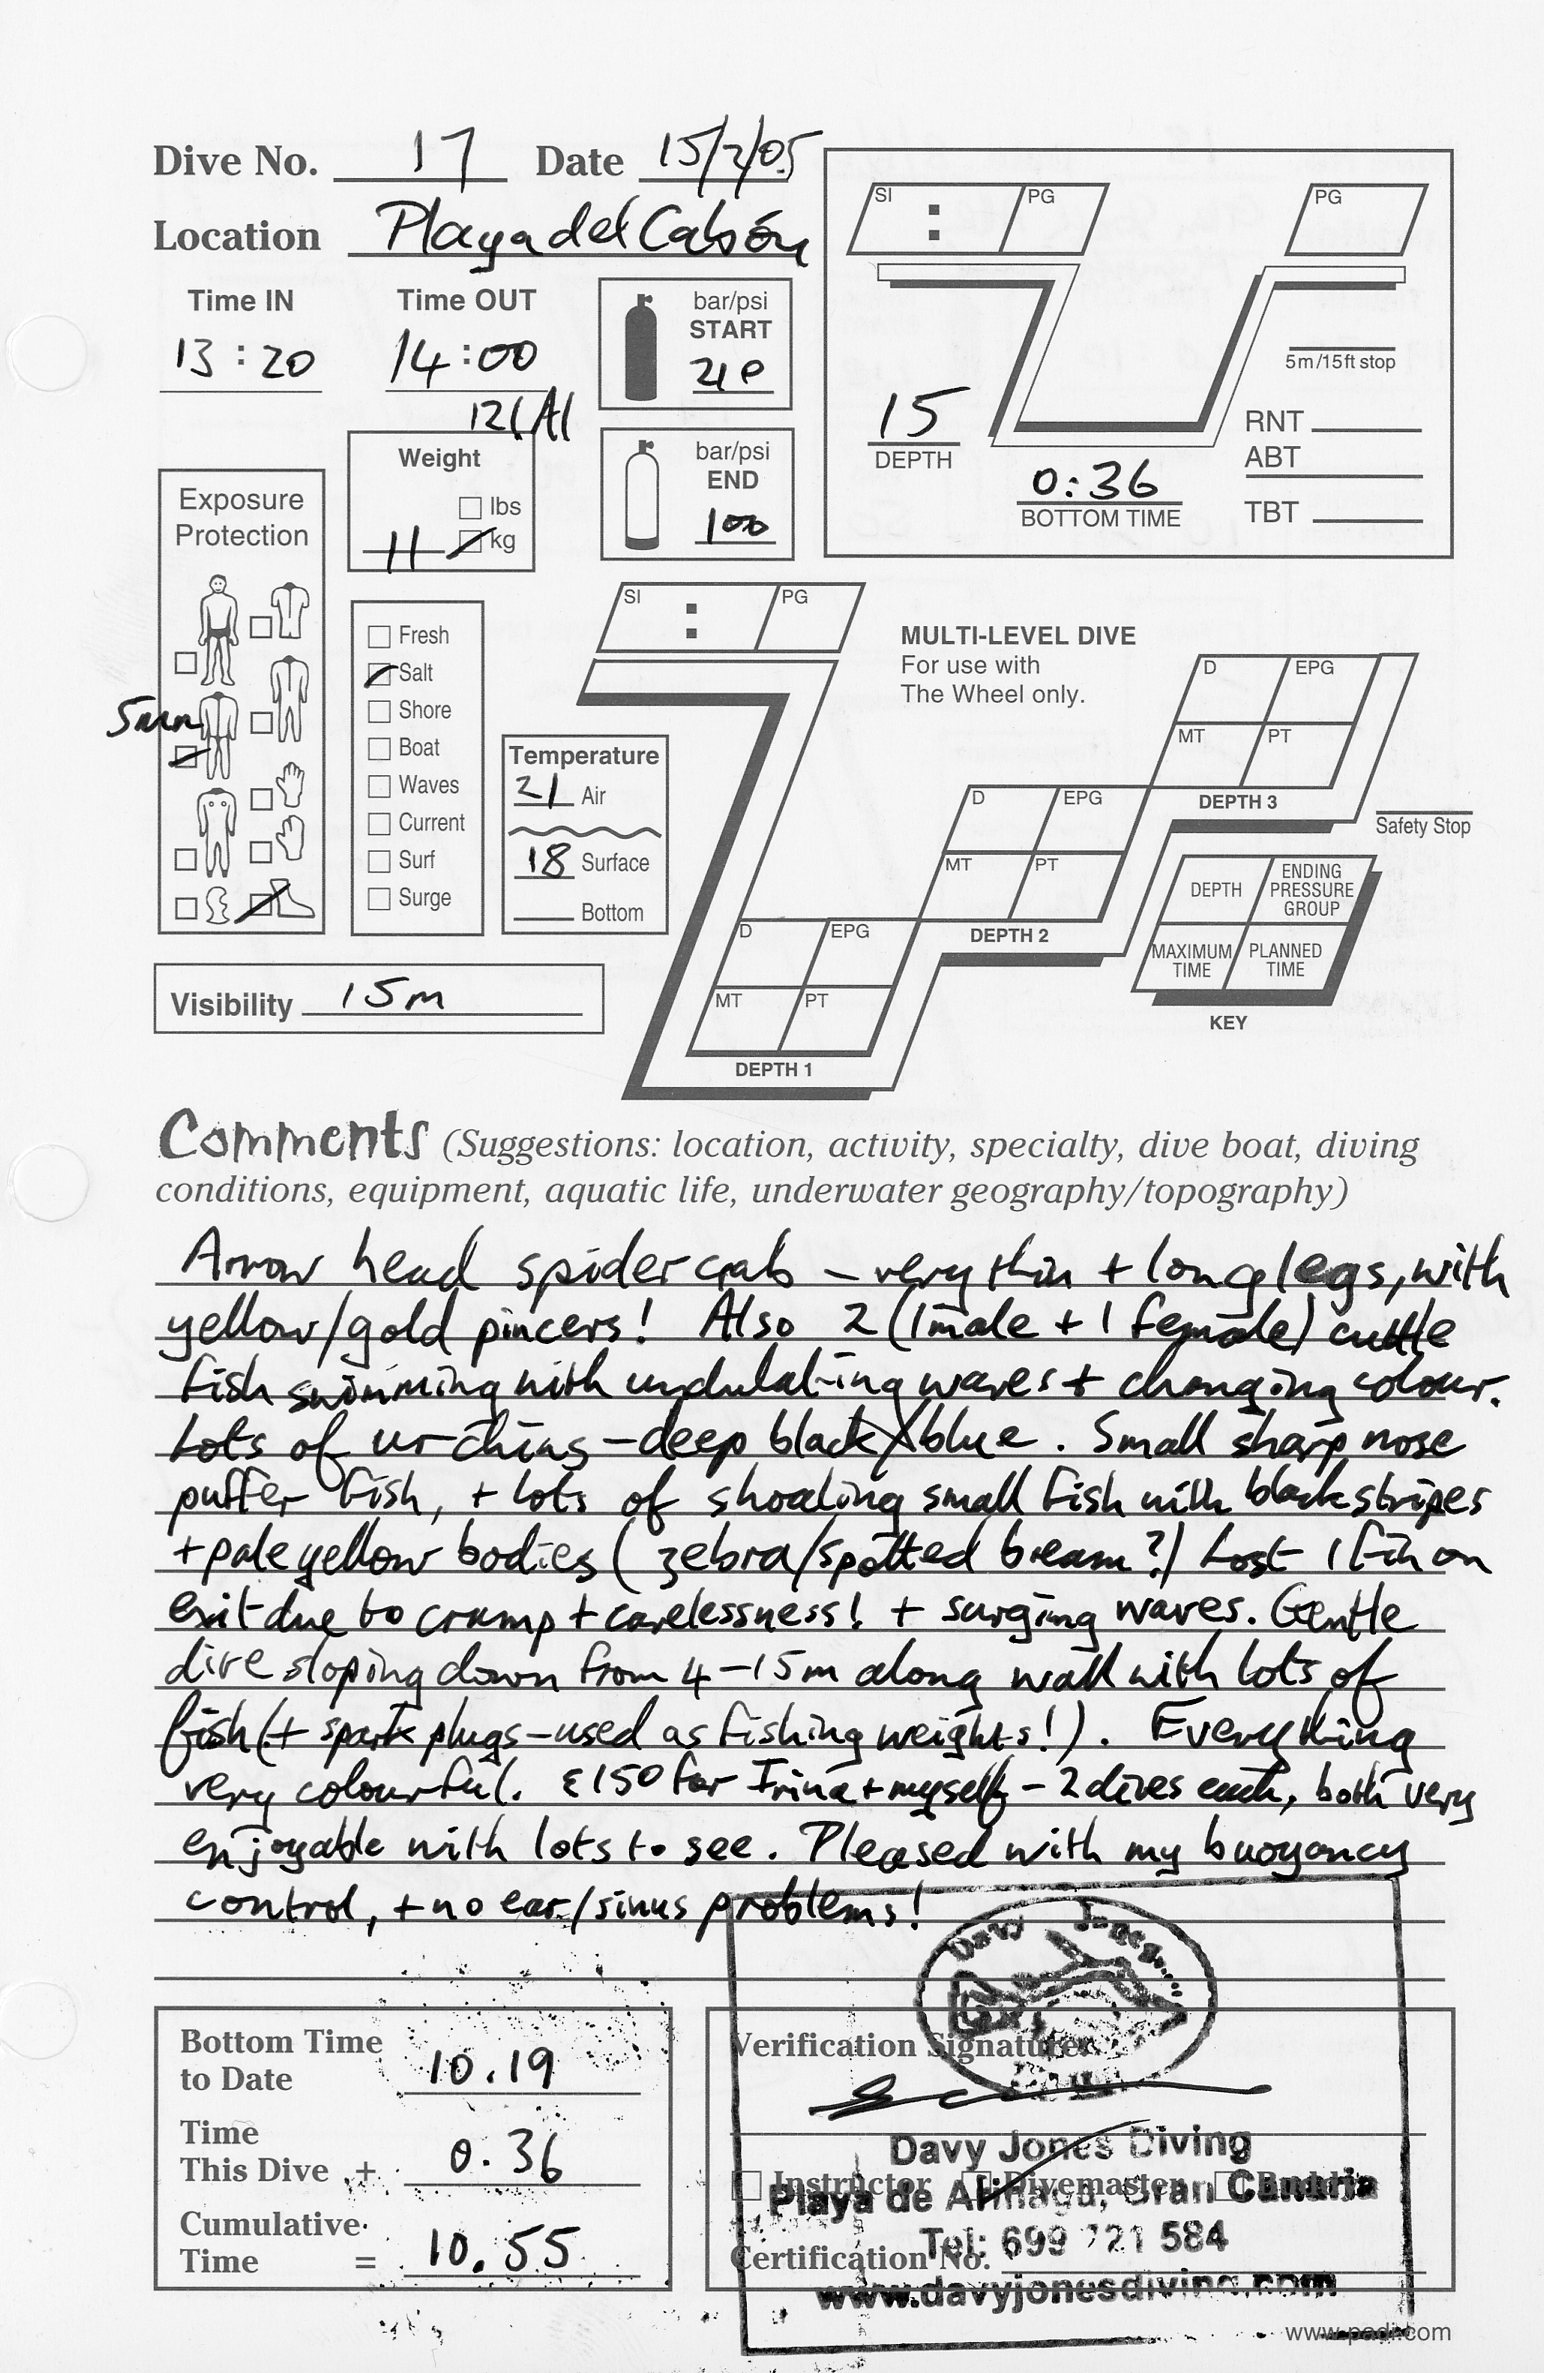 Dive No. 17 Date 15/2/05
Location Playa del Cabrón
Time IN Time OUT
13:20 14:00
12l Al
bar/psi
START
210
bar/psi
END
100
Weight
lbs
11 kg
SI : PG PG
5m/15ft stop
15
DEPTH
0:36
BOTTOM TIME
RNT
ABT
TBT
Exposure
Protection
5mm
Fresh
Salt
Shore
Boat
Waves
Current
Surf
Surge
Temperature
21 Air
18 Surface
Bottom
Visibility 15m
SI : PG
MULTI-LEVEL DIVE
For use with
The Wheel only.
D EPG
MT PT
DEPTH 3
D EPG
MT PT
DEPTH 2
D EPG
MT PT
DEPTH 1
Safety Stop
DEPTH ENDING PRESSURE GROUP
MAXIMUM TIME PLANNED TIME
KEY
Comments (Suggestions: location, activity, specialty, dive boat, diving
conditions, equipment, aquatic life, underwater geography/topography)
Arrow head spider crab - very thin + long legs, with
yellow/gold pincers! Also 2 (1male + 1 female) cuttle
fish swimming with undulating waves + changing colour.
Lots of urchins - deep black/blue. Small sharp nose
puffer fish, + lots of shoaling small fish with black stripes
+ pale yellow bodies (zebra/spotted bream?) Lost 1 fin on
exit due to cramp + carelessness! + surging waves. Gentle
dive sloping down from 4-15m along wall with lots of
fish (+ spark plugs - used as fishing weights!). Everything
very colourful. €150 for Irina + myself - 2 dives each, both very
enjoyable with lots to see. Pleased with my buoyancy
control, + no ear/sinus problems!
Bottom Time
to Date 10.19
Time
This Dive + 0.36
Cumulative
Time = 10.55
Davy Jones
Verification Signature
Davy Jones Diving
Instructor Divemaster
Playa de Arinaga, Gran Canaria
Tel: 699 721 584
Certification No.
www.davyjonesdiving.com
www.padi.com